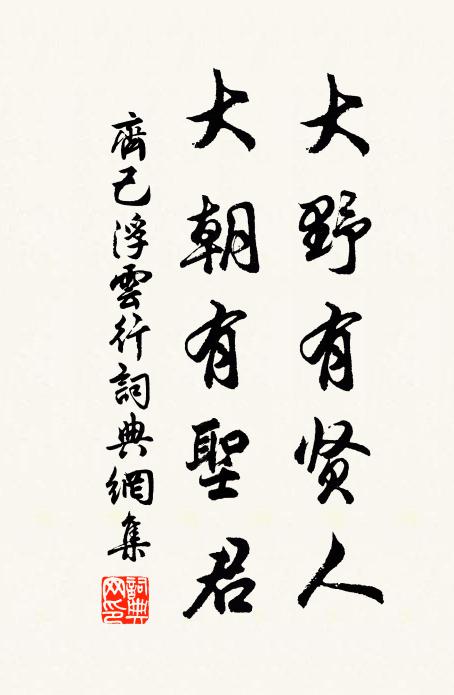 大野有贤人
大朝有聖君
齊己浮雲行詞典網集
詞典网印